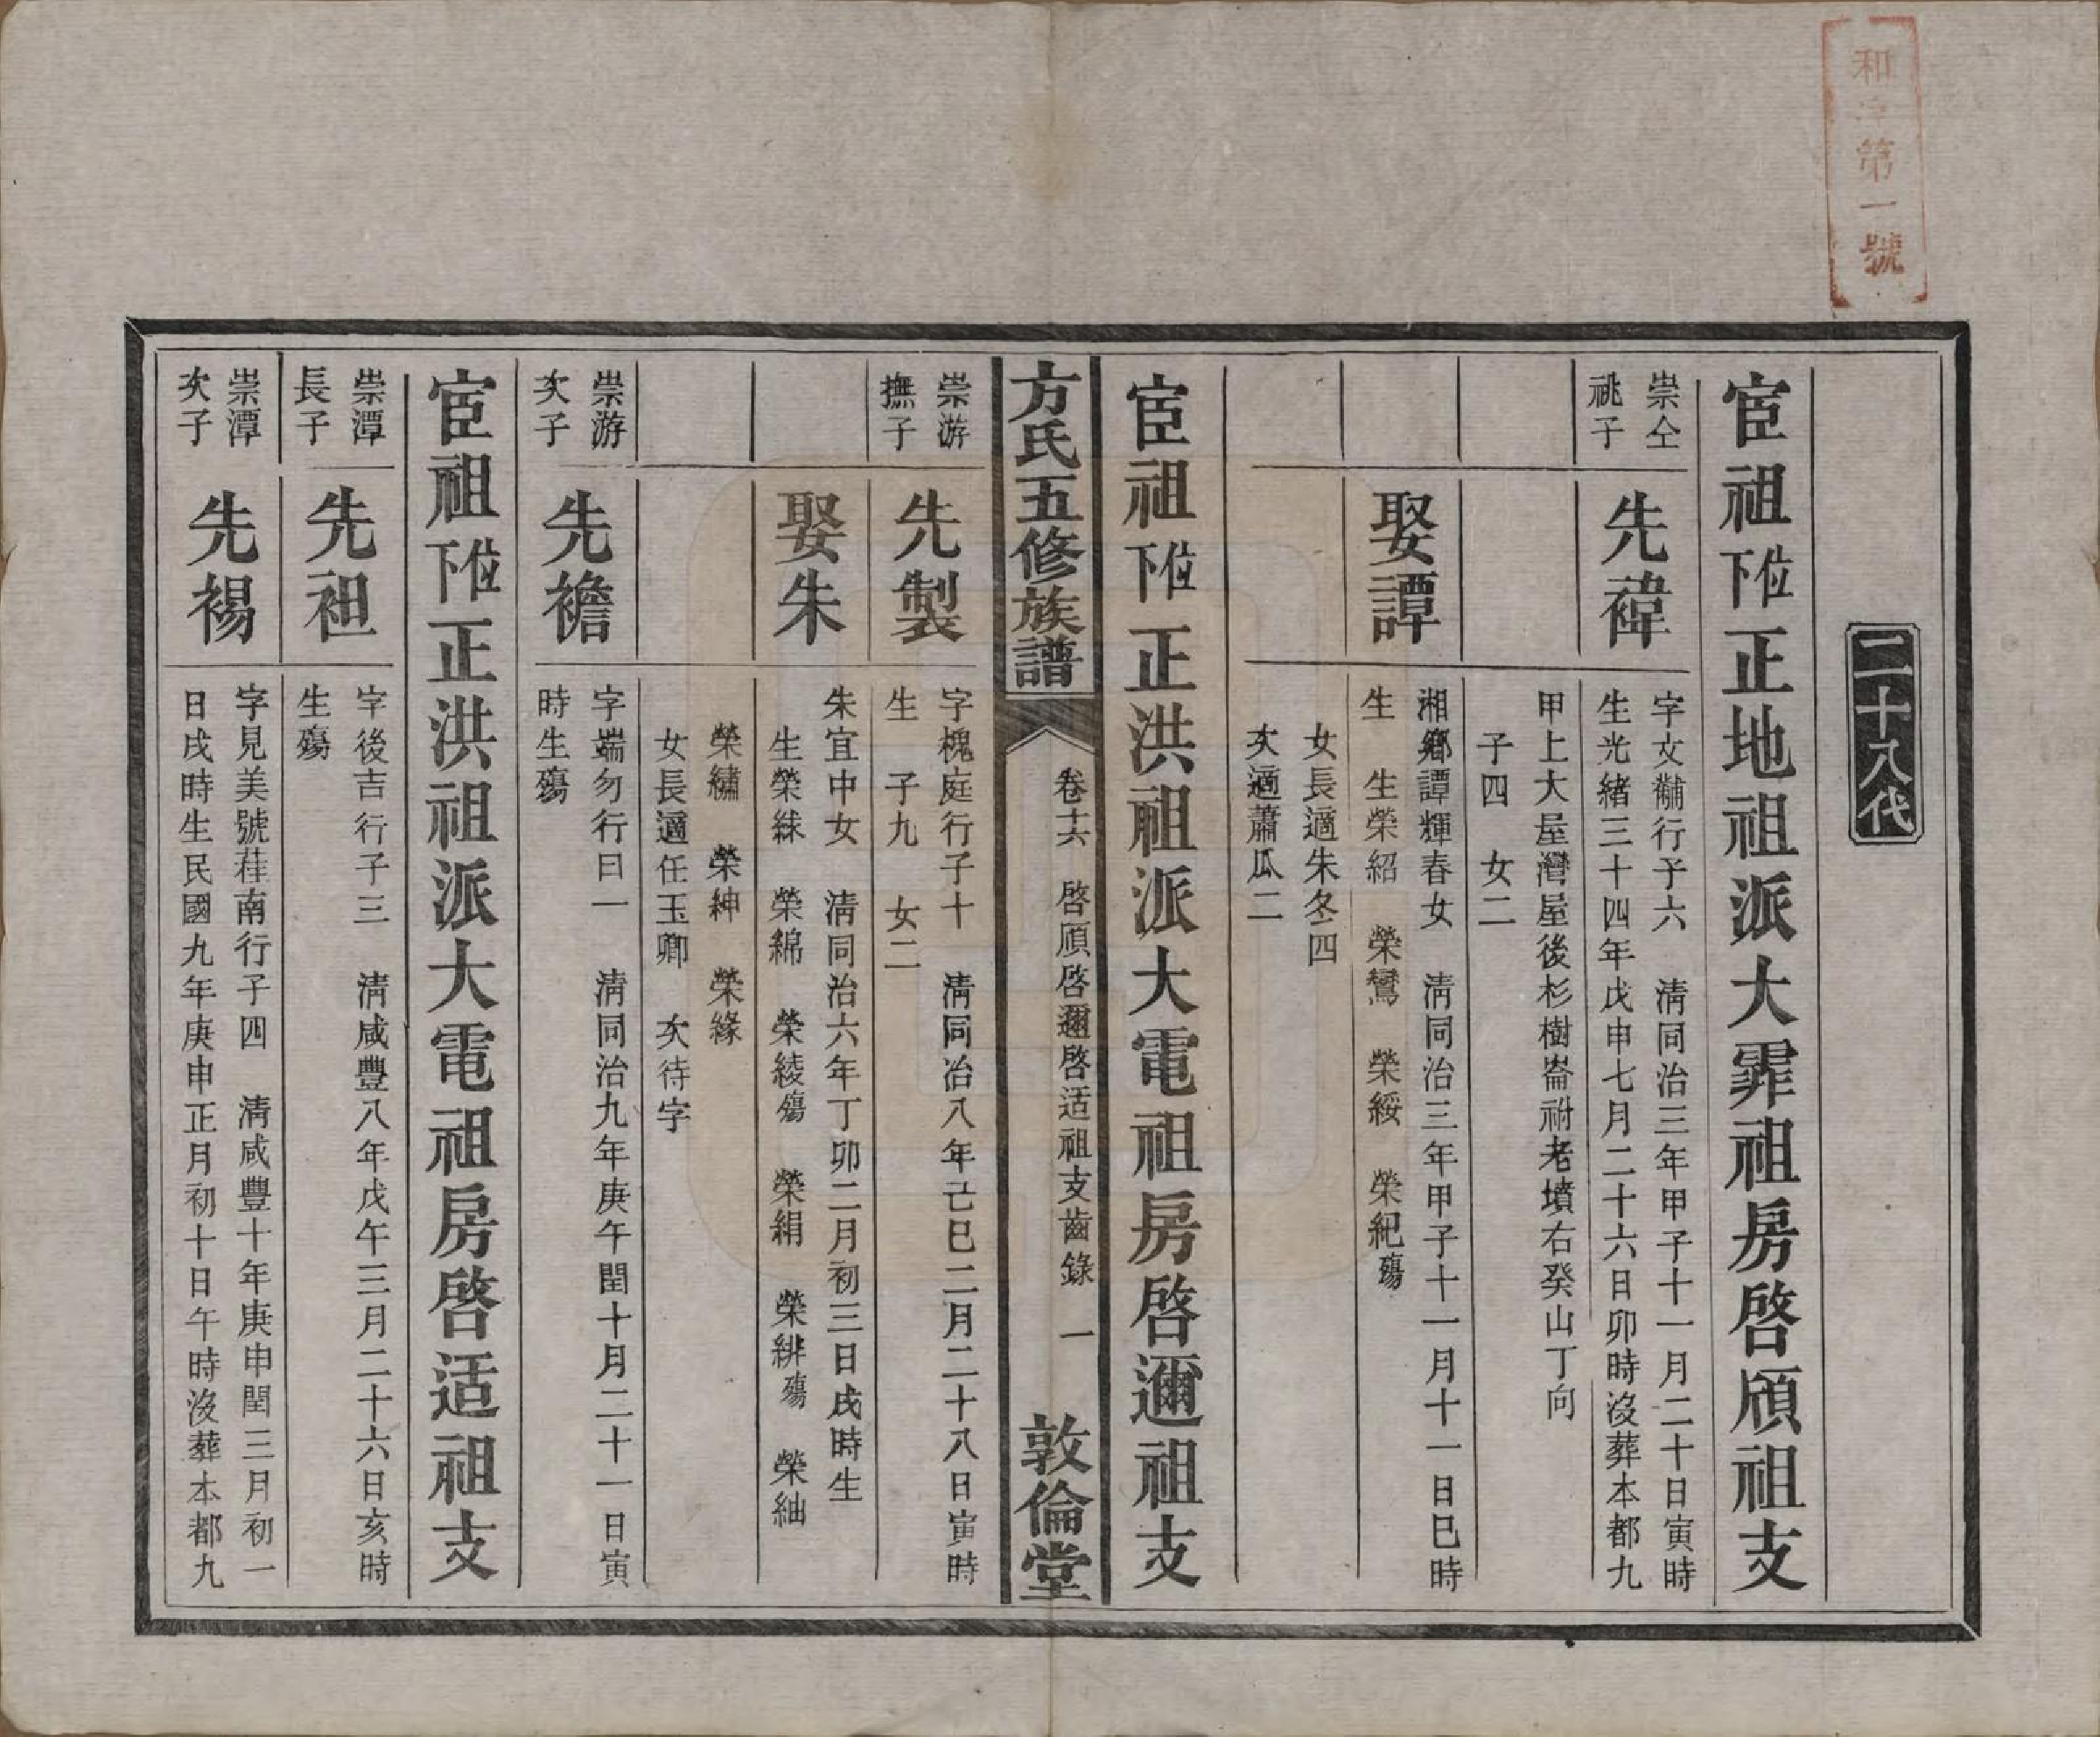 和字第一號
二十八代
宦祖位下正地祖派大霏祖房啓頎祖支
崇仝
祧子
先禕
字文黼行子六　清同治三年甲子十一月二十日寅時
生光緒三十四年戊申七月二十六日卯時沒葬本都九
甲上大屋灣屋後杉樹崙祔老墳右癸山丁向
子四　女二
娶譚
湘鄉譚輝春女　清同治三年甲子十一月十一日巳時
生　生榮紹　榮鸞　榮綏　榮紀殤
女長適朱冬四
次適蕭瓜二
宦祖位下正洪祖派大電祖房啓邇祖支
方氏五修族譜
卷十六　啓頎啓邇啓适祖支齒錄　一
敦倫堂
崇游
撫子
先製
字槐庭行子十　清同治八年己巳二月二十八日寅時
生　子九　女二
娶朱
朱宜中女　清同治六年丁卯二月初三日戌時生
生榮絑　榮綿　榮綾殤　榮絹　榮緋殤　榮紬
榮繡　榮紳　榮緣
女長適任玉卿　次待字
崇游
次子
先襜
字端勿行曰一　清同治九年庚午閏十月二十一日寅
時生殤
宦祖位下正洪祖派大電祖房啓适祖支
崇潭
長子
先袓
字後吉行子三　清咸豐八年戊午三月二十六日亥時
生殤
崇潭
次子
先裼
字見美號菈南行子四　清咸豐十年庚申閏三月初一
日戌時生民國九年庚申正月初十日午時沒葬本都九